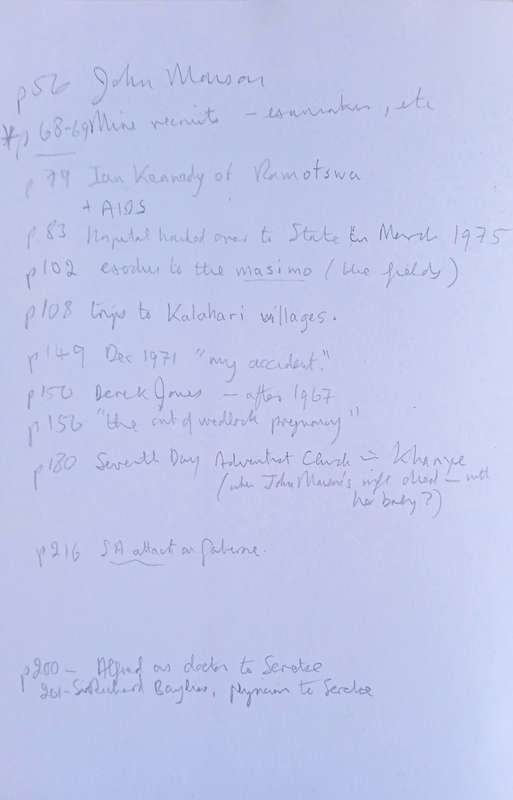 p56 John Monson
* p 68-69 Mine recruits – examination, etc
p 79 Ian Kennedy of Ramotswa
+ AIDS
p 83 Hospital handed over to State in March 1975
p102 exodus to the masimo (the fields)
p108 trips to Kalahari villages.
p149 Dec 1971 "my accident."
p150 Derek Jones – after 1967
p156 "the out of wedlock pregnancy"
p180 Seventh Day Adventist Church in Kanye
(when John Monson's wife died – with
her baby?)
p216 SA attack on Gaborone.
p200 – Alfred as doctor to Seretse
201 – Sir Richard Bayliss, physician to Seretse